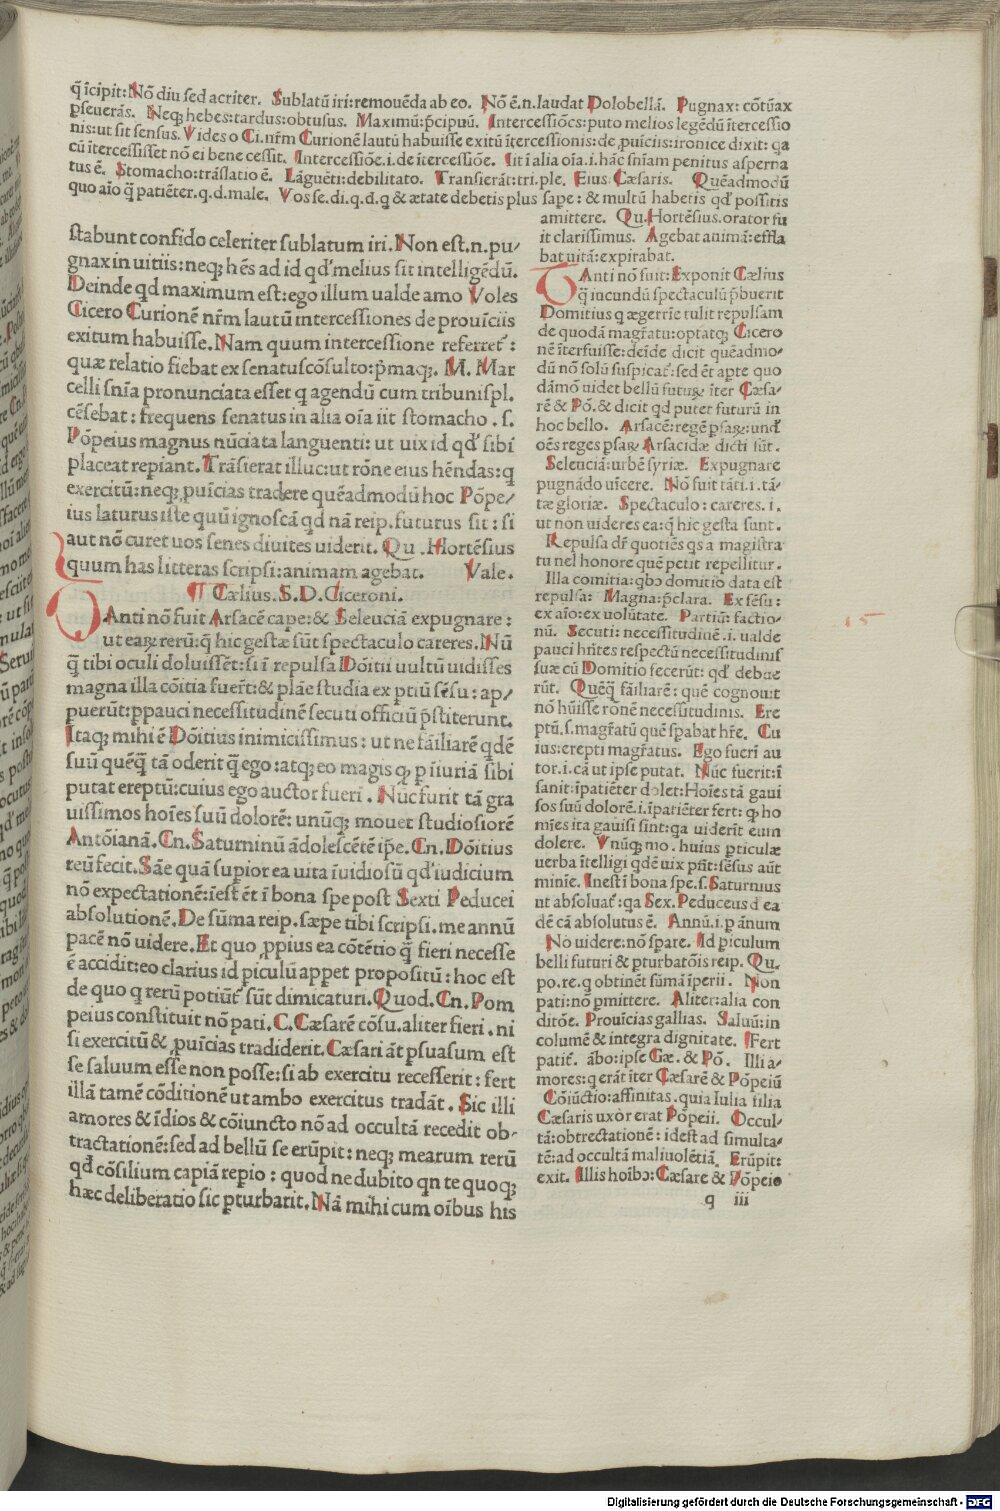 q̄ īcipit: Nō diu sed acriter. Sublatū iri: remouēda ab eo. Nō ē.n. laudat Dolobellā. Pugnax: cōtūax
pseuerās. Neq; hebes: tardus: obtusus. Maximū: p̄cipuū. Intercessiōes: puto melios legēdū ītercessio
nis: ut sit sensus. Vides o Ci. nr̄m Curionē lautū habuisse exitū ītercessionis: de ꝓuīciis: ironice dixit: qa
cū ītercessisset nō ei bene cessit. Intercessiōe .i. de ītercessiōe. Iit ī alia oīa .i. hāc sn̄iam penitus asperna
tus ē. Stomacho: trāslatio ē. Lāguēti: debilitato. Transierāt: tri. ple. Eius Cæsaris. Quēadmodū
quo aīo q̄ patiēter. q. d. male. Vos se. di. q. d. q & ætate debetis plus sape: & multū habetis qđ possitis
stabunt confido celeriter sublatum iri. Non est .n. pu-
gnax in uitiis: neq; hēs ad id qđ melius sit intelligēdū.
Deinde qđ maximum est: ego illum ualde amo Voles
Cicero Curionē nr̄m lautū intercessiones de prouīciis
exitum habuisse. Nam quum intercessione referret̄:
quæ relatio fiebat ex senatuscōsulto: p̄maq; M. Mar
celli sn̄ia pronunciata esset q agendū cum tribunis pl.
cēsebat: frequens senatus in alia oīa iit stomacho .s.
Pōpeius magnus nūciata languenti: ut uix id qđ sibi
placeat repiant. Trāsierat illuc: ut rōne eius hēndas: q
exercitū: neq; ꝓuīcias tradere quēadmodū hoc Pōpe-
ius laturus iste quū ignoscā qđ nā reip. futurus sit: si
aut nō curet uos senes diuites uiderit. Qu. Hortēsius
quum has litteras scripsi: animam agebat. Vale.
¶ Cælius. S. D. Ciceroni.
TAnti nō fuit Arsacē cape: & Seleuciā expugnare:
ut eaꝝ rerū: q̄ hic gestæ sūt spectaculo careres. Nū
q̄ tibi oculi doluissēt: si ī repulsa Dōitii uultū uidisses
magna illa cōitia fuer̄t: & plāe studia ex ptiū sēsu: ap-
puerūt: ppauci necessitudinē secuti officiū p̄stiterunt.
Itaq; mihi ē Dōitius inimicissimus: ut ne fāiliarē qdē
suū quēq̄ tā oderit q̄ ego: atq; eo magis q; p iiuriā sibi
putat ereptū: cuius ego auctor fueri. Nūc furit tā gra
uissimos hoīes suū dolorē: unūq; mouet studiosiorē
Antōianā. Cn. Saturninū ādolescētē ip̄e. Cn. Dōitius
reū fecit. Sāe quā supior ea uita īuidiosū qđ iudicium
nō expectationē: īest ēt ī bona spe post Sexti Peducei
absolutionē. De sūma reip. sæpe tibi scripsi. me annū
pacē nō uidere. Et quo ꝓpius ea cōtētio q̄ fieri necesse
ē accidit: eo clarius id piculū appet propositū: hoc est
de quo q rerū potiūt̄ sūt dimicaturi. Quod. Cn. Pom
peius constituit nō pati. C. Cæsarē cōsu. aliter fieri. ni
si exercitū & ꝓuīcias tradiderit. Cæsari āt psuasum est
se saluum esse non posse: si ab exercitu recesserit: fert
illā tamē cōditionē ut ambo exercitus tradāt. Sic illi
amores & īdios & cōiuncto nō ad occultā recedit ob-
tractationē: sed ad bellū se erūpit: neq; mearum rerū
qđ cōsilium capiā repio: quod ne dubito qn te quoq;
hæc deliberatio sic pturbarit. Nā mihi cum oībus his
amittere. Qu. Hortēsius. orator fu
it clarissimus. Agebat animā: effla
bat uitā: expirabat.
TAnti nō fuit: Exponit Cælius
q̄ iucundū spectaculū p̄buerit
Domitius q ægerrie tulit repulsam
de quodā magr̄atu: optatq; Cicero
nē īterfuisse: deīde dicit quēadmo-
dū nō solū suspicat̄: sed ēt apte quo
dāmō uidet bellū futuꝝ īter Cæsa-
rē & Pō. & dicit qđ putet futurū in
hoc bello. Arsacē: regē psaꝝ: unđ
oēs reges psaꝝ Arsacidæ dicti sūt.
Seleuciā: urbē syriæ. Expugnare
pugnādo uīcere. Nō fuit tāti .i. tā-
tæ gloriæ. Spectaculo: careres .i.
ut non uideres ea: q̄ hic gesta sunt.
Repulsa dr̄ quotiēs qs a magistra
tu nel honore quē petit repellitur.
Illa comitia: qbo domitio data est
repulsa: Magna: p̄clara. Ex sēsu:
ex aīo: ex uolūtate. Partiū: factio-
nū. Secuti: necessitudinē .i. ualde
pauci hn̄tes respectū necessitudinis
suæ cū Domitio fecerūt: qđ debue
rūt. Quēq̄ fāiliarē: quē cognouit
nō hūisse rōnē necessitudinis. Ere
ptū .s. magr̄atū quē spabat hr̄e. Cu
ius: erepti magr̄atus. Ego fueri au
tor .i. cā ut ipse putat. Nūc fuerit: ī
sanit: īpatiēter dolet: Hoīes tā gaui
sos suū dolorē .i. īpatiēter fert: q; ho
mīes ita gauisi sint: qa uiderīt eum
dolere. Vnūq; mo. huius pticulæ
uerba ītelligi qdē uix pn̄t: sēsus aūt
minīe. Inest ī bona spe .s. Saturnius
ut absoluat̄: qa Sex. Peduceus đ ea
dē cā absolutus ē. Annū .i. p ānum
No uidere: nō spare. Id piculum
belli futuri & pturbatōis reip. Qu.
po. re. q obtinēt sūmā īperii. Non
pati: nō pmittere. Aliter: alia con
ditōe. Prouīcias gallias. Saluū: in
columē & integra dignitate. Fert
patit̄. ābo: ipse Cæ. & Pō. Illi a-
mores: q erāt īter Cæsarē & Pōpeiū
Cōiūctio: affinitas. quia Iulia filia
Cæsaris uxor erat Pōpeii. Occul-
tā: obtrectationē: idest ad simulta-
tē: ad occultā maliuolētiā. Erūpit:
exit. Illis hoībo: Cæsare & Pōpeio
q iii
15
Digitalisierung gefördert durch die Deutsche Forschungsgemeinschaft - DFG